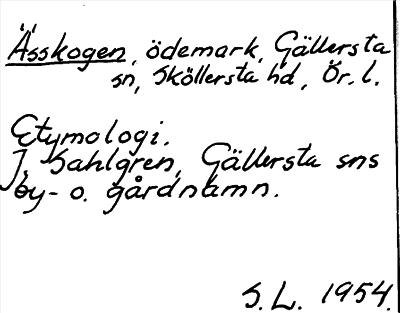 Ässkogen, ödemark, Gällersta
sn, Sköllersta hd, Ör. l.
Etymologi.
J. Sahlgren, Gällersta sns
by- o. gårdnamn.
S.L. 1954.